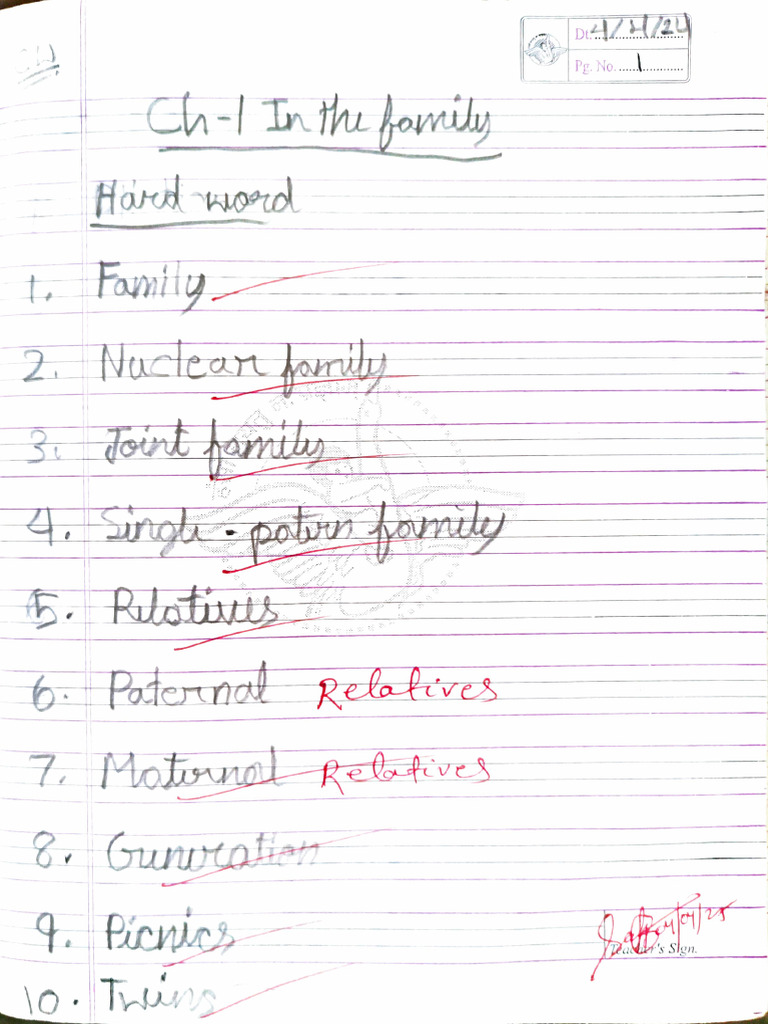 CW
Dt. 4/4/24
Pg. No. 1
Ch-1 In the family
Hard word
1. Family
2. Nuclear family
3. Joint family
4. Single - patern family
5. Relatives
6. Paternal Relatives
7. Maternal Relatives
8. Guneration
9. Picnics
04/04/25
Teacher's Sign.
10. Twins